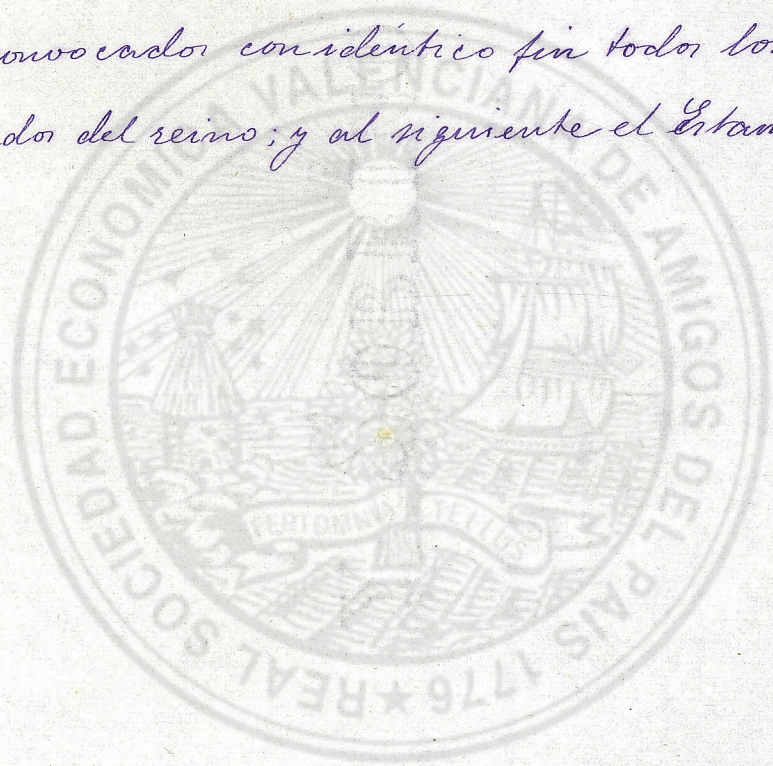 onvocados con idéntico fin todos los
dos del reino; y al siguiente el Estam
REAL SOCIEDAD ECONOMICA VALENCIANA DE AMIGOS DEL PAIS 1776 ★
FERT OMNIA TELLUS